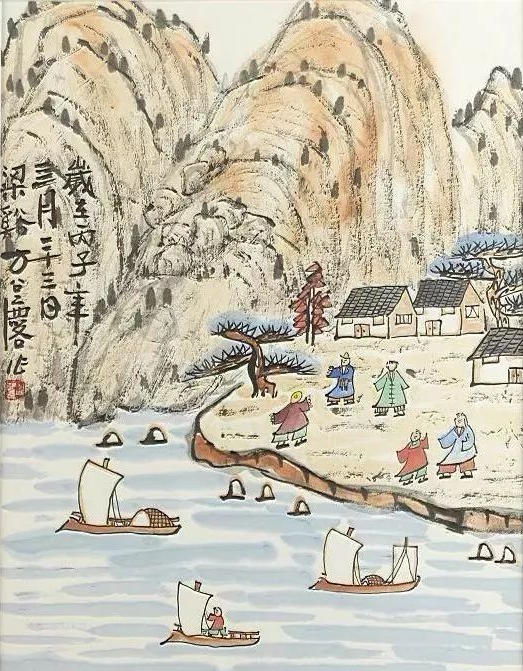 歲在丙子年
三月二十三日
梁谿方召麐作